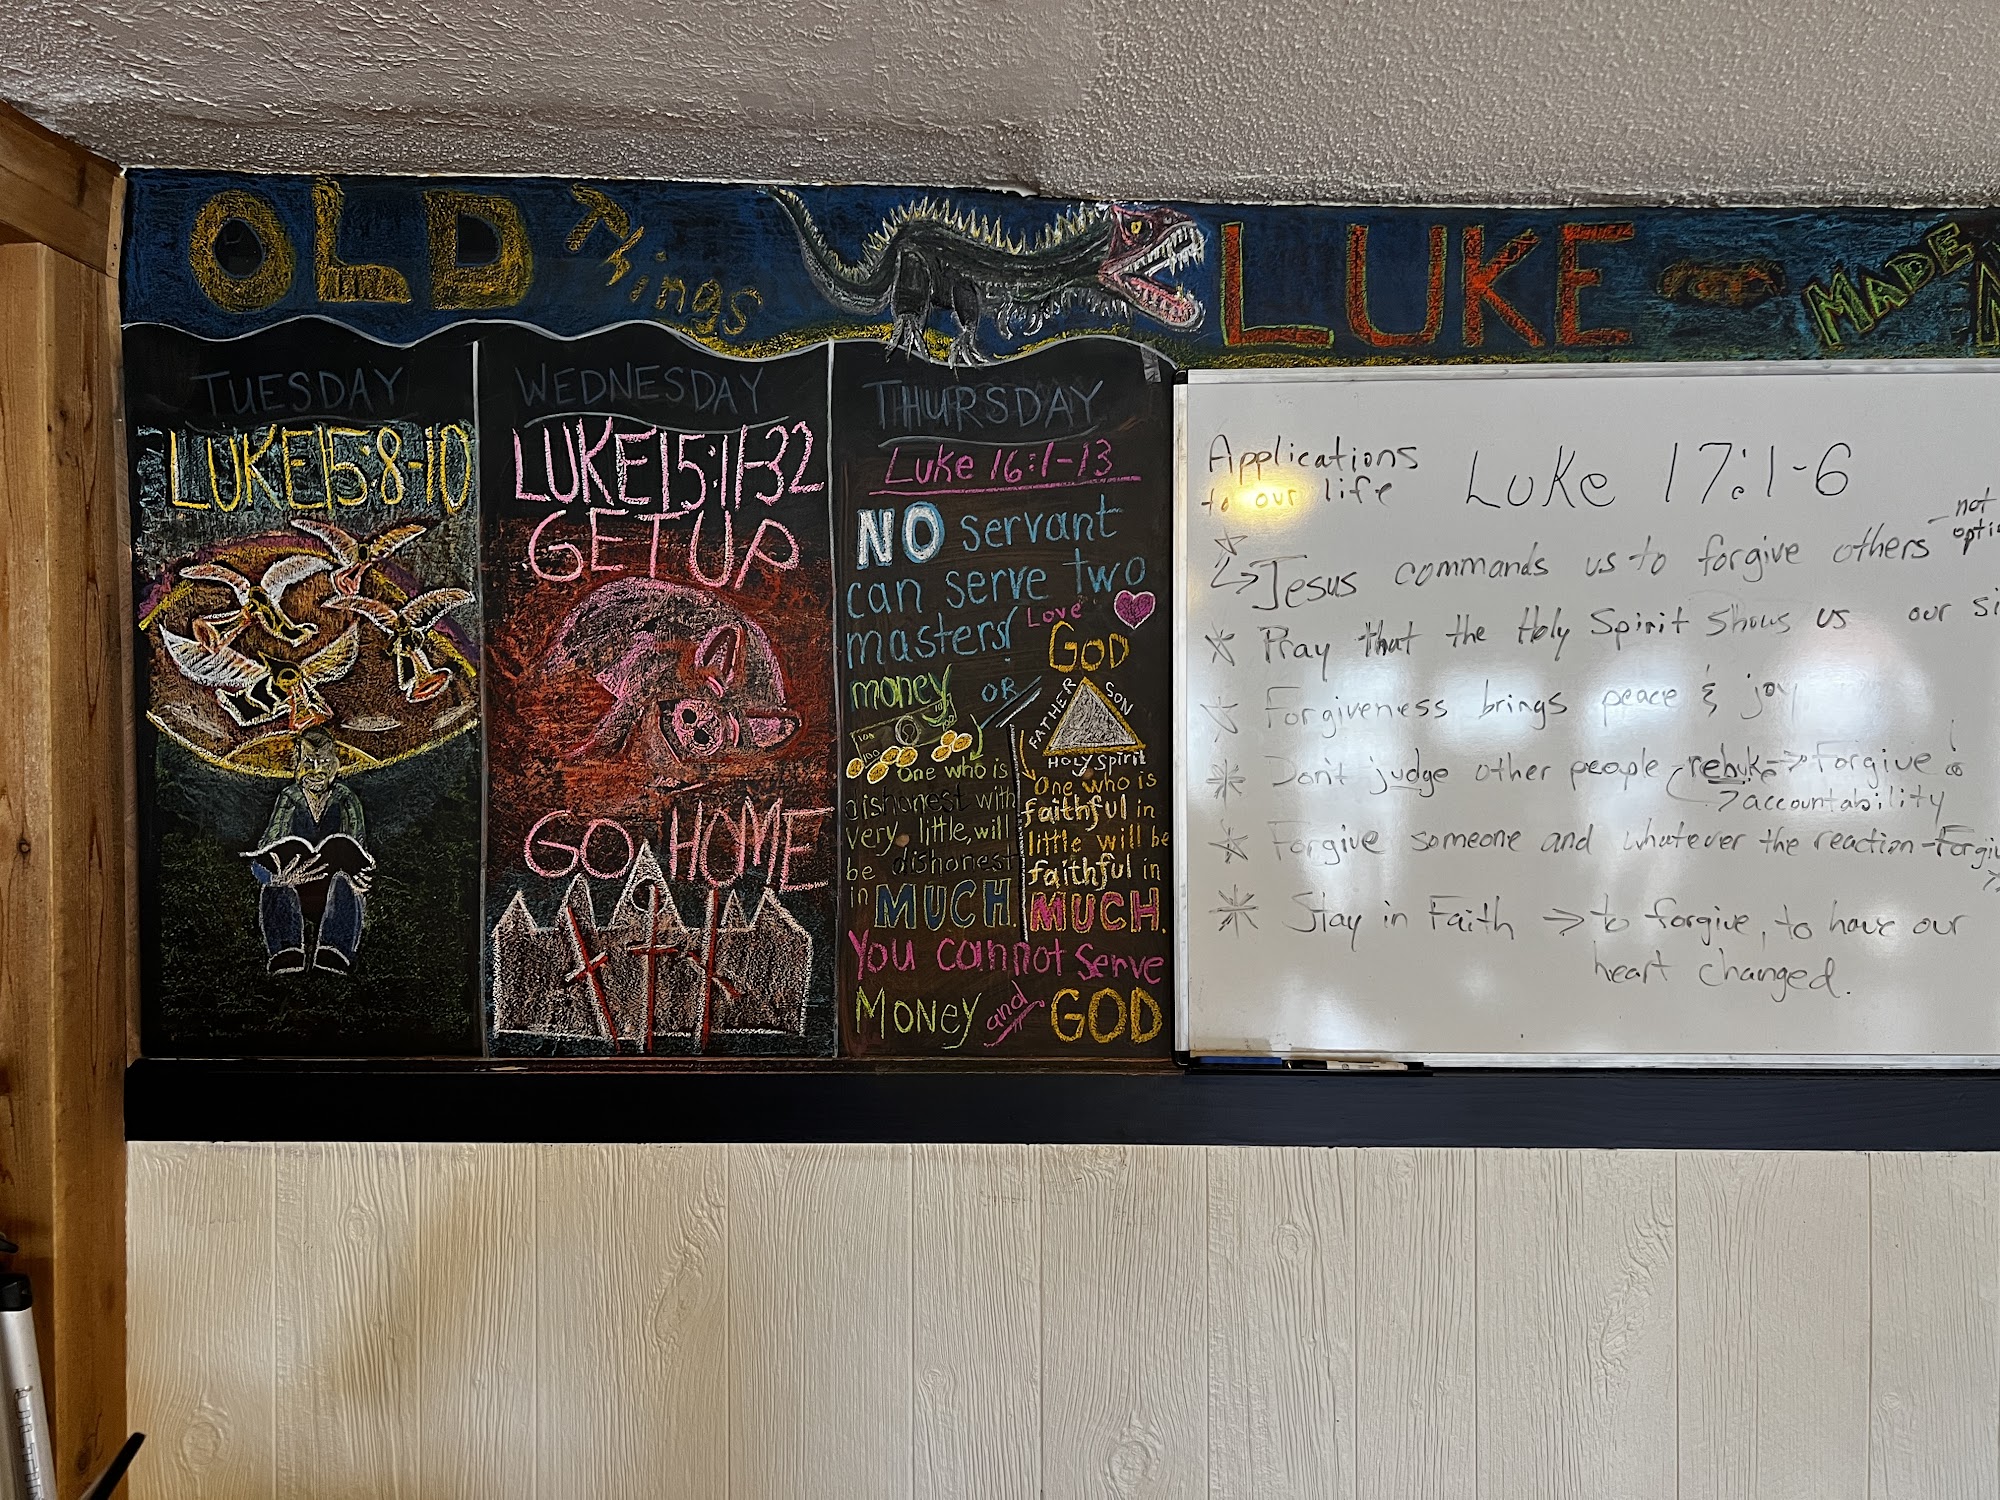 OLD Things LUKE MADE
TUESDAY
LUKE 15:8-10
WEDNESDAY
LUKE 15:11-32
GET UP
GO HOME
THURSDAY
Luke 16:1-13
NO servant
can serve two
masters!
Love
GOD
money
OR
FATHER
SON
HOLY Spirit
100
100
One who is
dishonest with
very little, will
be dishonest
in MUCH.
One who is
faithful in
little will be
faithful in
MUCH.
You cannot serve
Money and GOD
Applications
to our life
Luke 17:1-6
Jesus commands us to forgive others - not
Pray that the Holy Spirit shows us our
Forgiveness brings peace & joy
Don't judge other people rebuke -> Forgive
> accountability
Forgive someone and whatever the reaction -
Stay in Faith -> to forgive, to have our
heart changed.